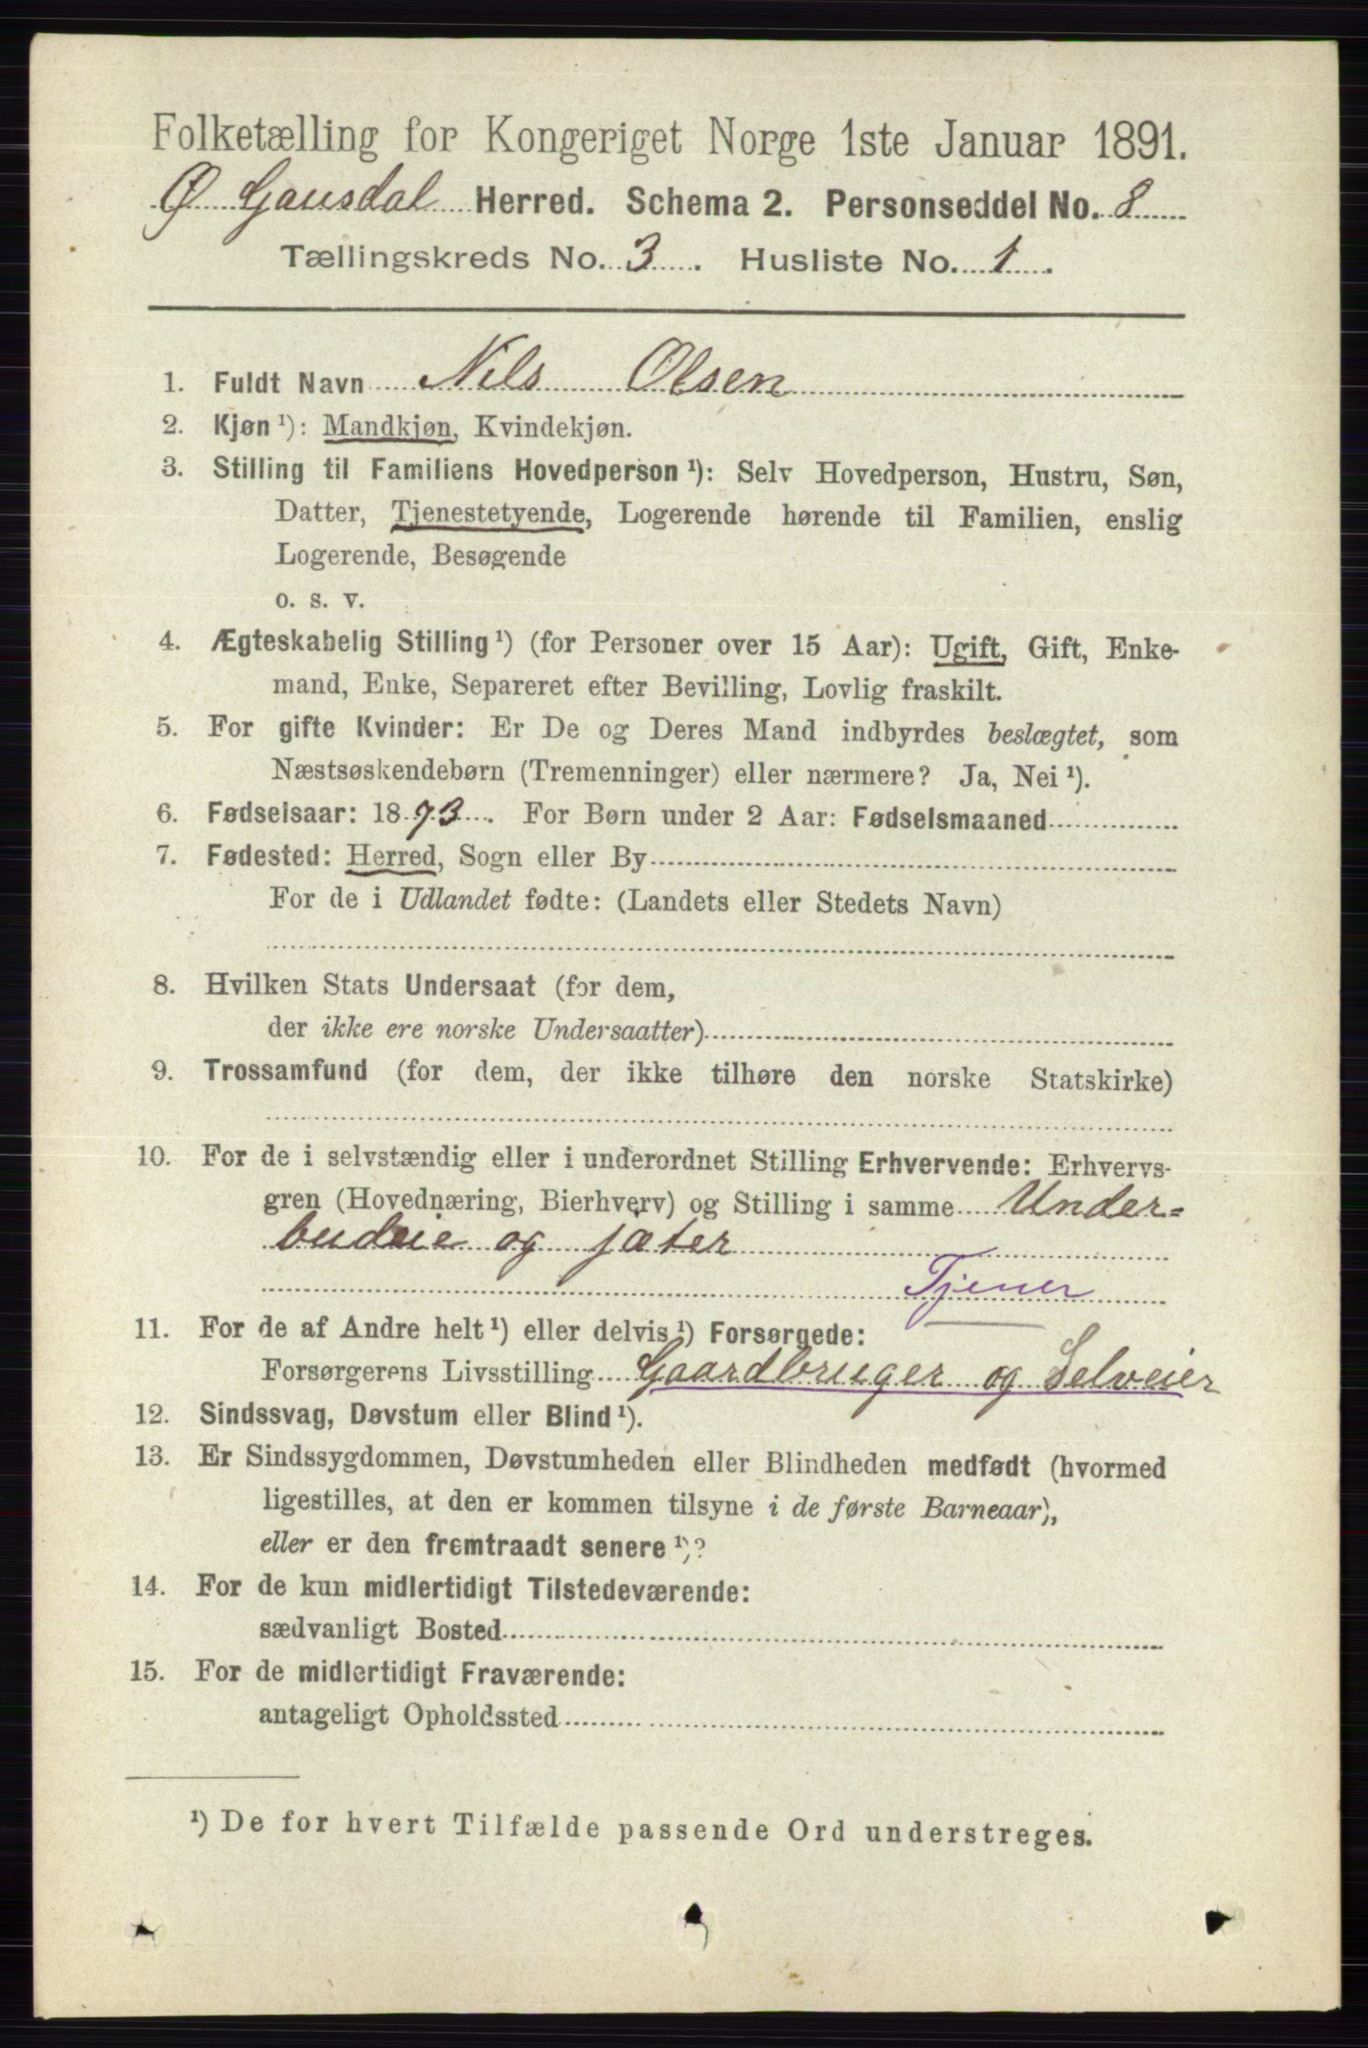 Folketælling for Kongeriget Norge 1ste Januar 1891.
Ø Gausdal Herred. Schema 2. Personseddel No. 8
Tællingskreds No. 3. Husliste No. 1.
1. Fuldt Navn Nils Olsen
2. Kjøn ¹): Mandkjøn, Kvindekjøn.
3. Stilling til Familiens Hovedperson ¹): Selv Hovedperson, Hustru, Søn,
Datter, Tjenestetyende, Logerende hørende til Familien, enslig
Logerende, Besøgende
o. s. v.
4. Ægteskabelig Stilling ¹) (for Personer over 15 Aar): Ugift, Gift, Enke-
mand, Enke, Separeret efter Bevilling, Lovlig fraskilt.
5. For gifte Kvinder: Er De og Deres Mand indbyrdes beslægtet, som
Næstsøskendebørn (Tremenninger) eller nærmere? Ja, Nei ¹).
6. Fødselsaar: 1873. For Børn under 2 Aar: Fødselsmaaned
7. Fødested: Herred, Sogn eller By
For de i Udlandet fødte: (Landets eller Stedets Navn)
8. Hvilken Stats Undersaat (for dem,
der ikke ere norske Undersaatter)
9. Trossamfund (for dem, der ikke tilhøre den norske Statskirke)
10. For de i selvstændig eller i underordnet Stilling Erhvervende: Erhvervs-
gren (Hovednæring, Bierhverv) og Stilling i samme Under=
budeie og jæter
Tjener
11. For de af Andre helt ¹) eller delvis ¹) Forsørgede:
Forsørgerens Livsstilling Gaardbruger og Selveier
12. Sindssvag, Døvstum eller Blind ¹).
13. Er Sindssygdommen, Døvstumheden eller Blindheden medfødt (hvormed
ligestilles, at den er kommen tilsyne i de første Barneaar),
eller er den fremtraadt senere ¹)?
14. For de kun midlertidigt Tilstedeværende:
sædvanligt Bosted
15. For de midlertidigt Fraværende:
antageligt Opholdssted
¹) De for hvert Tilfælde passende Ord understreges.